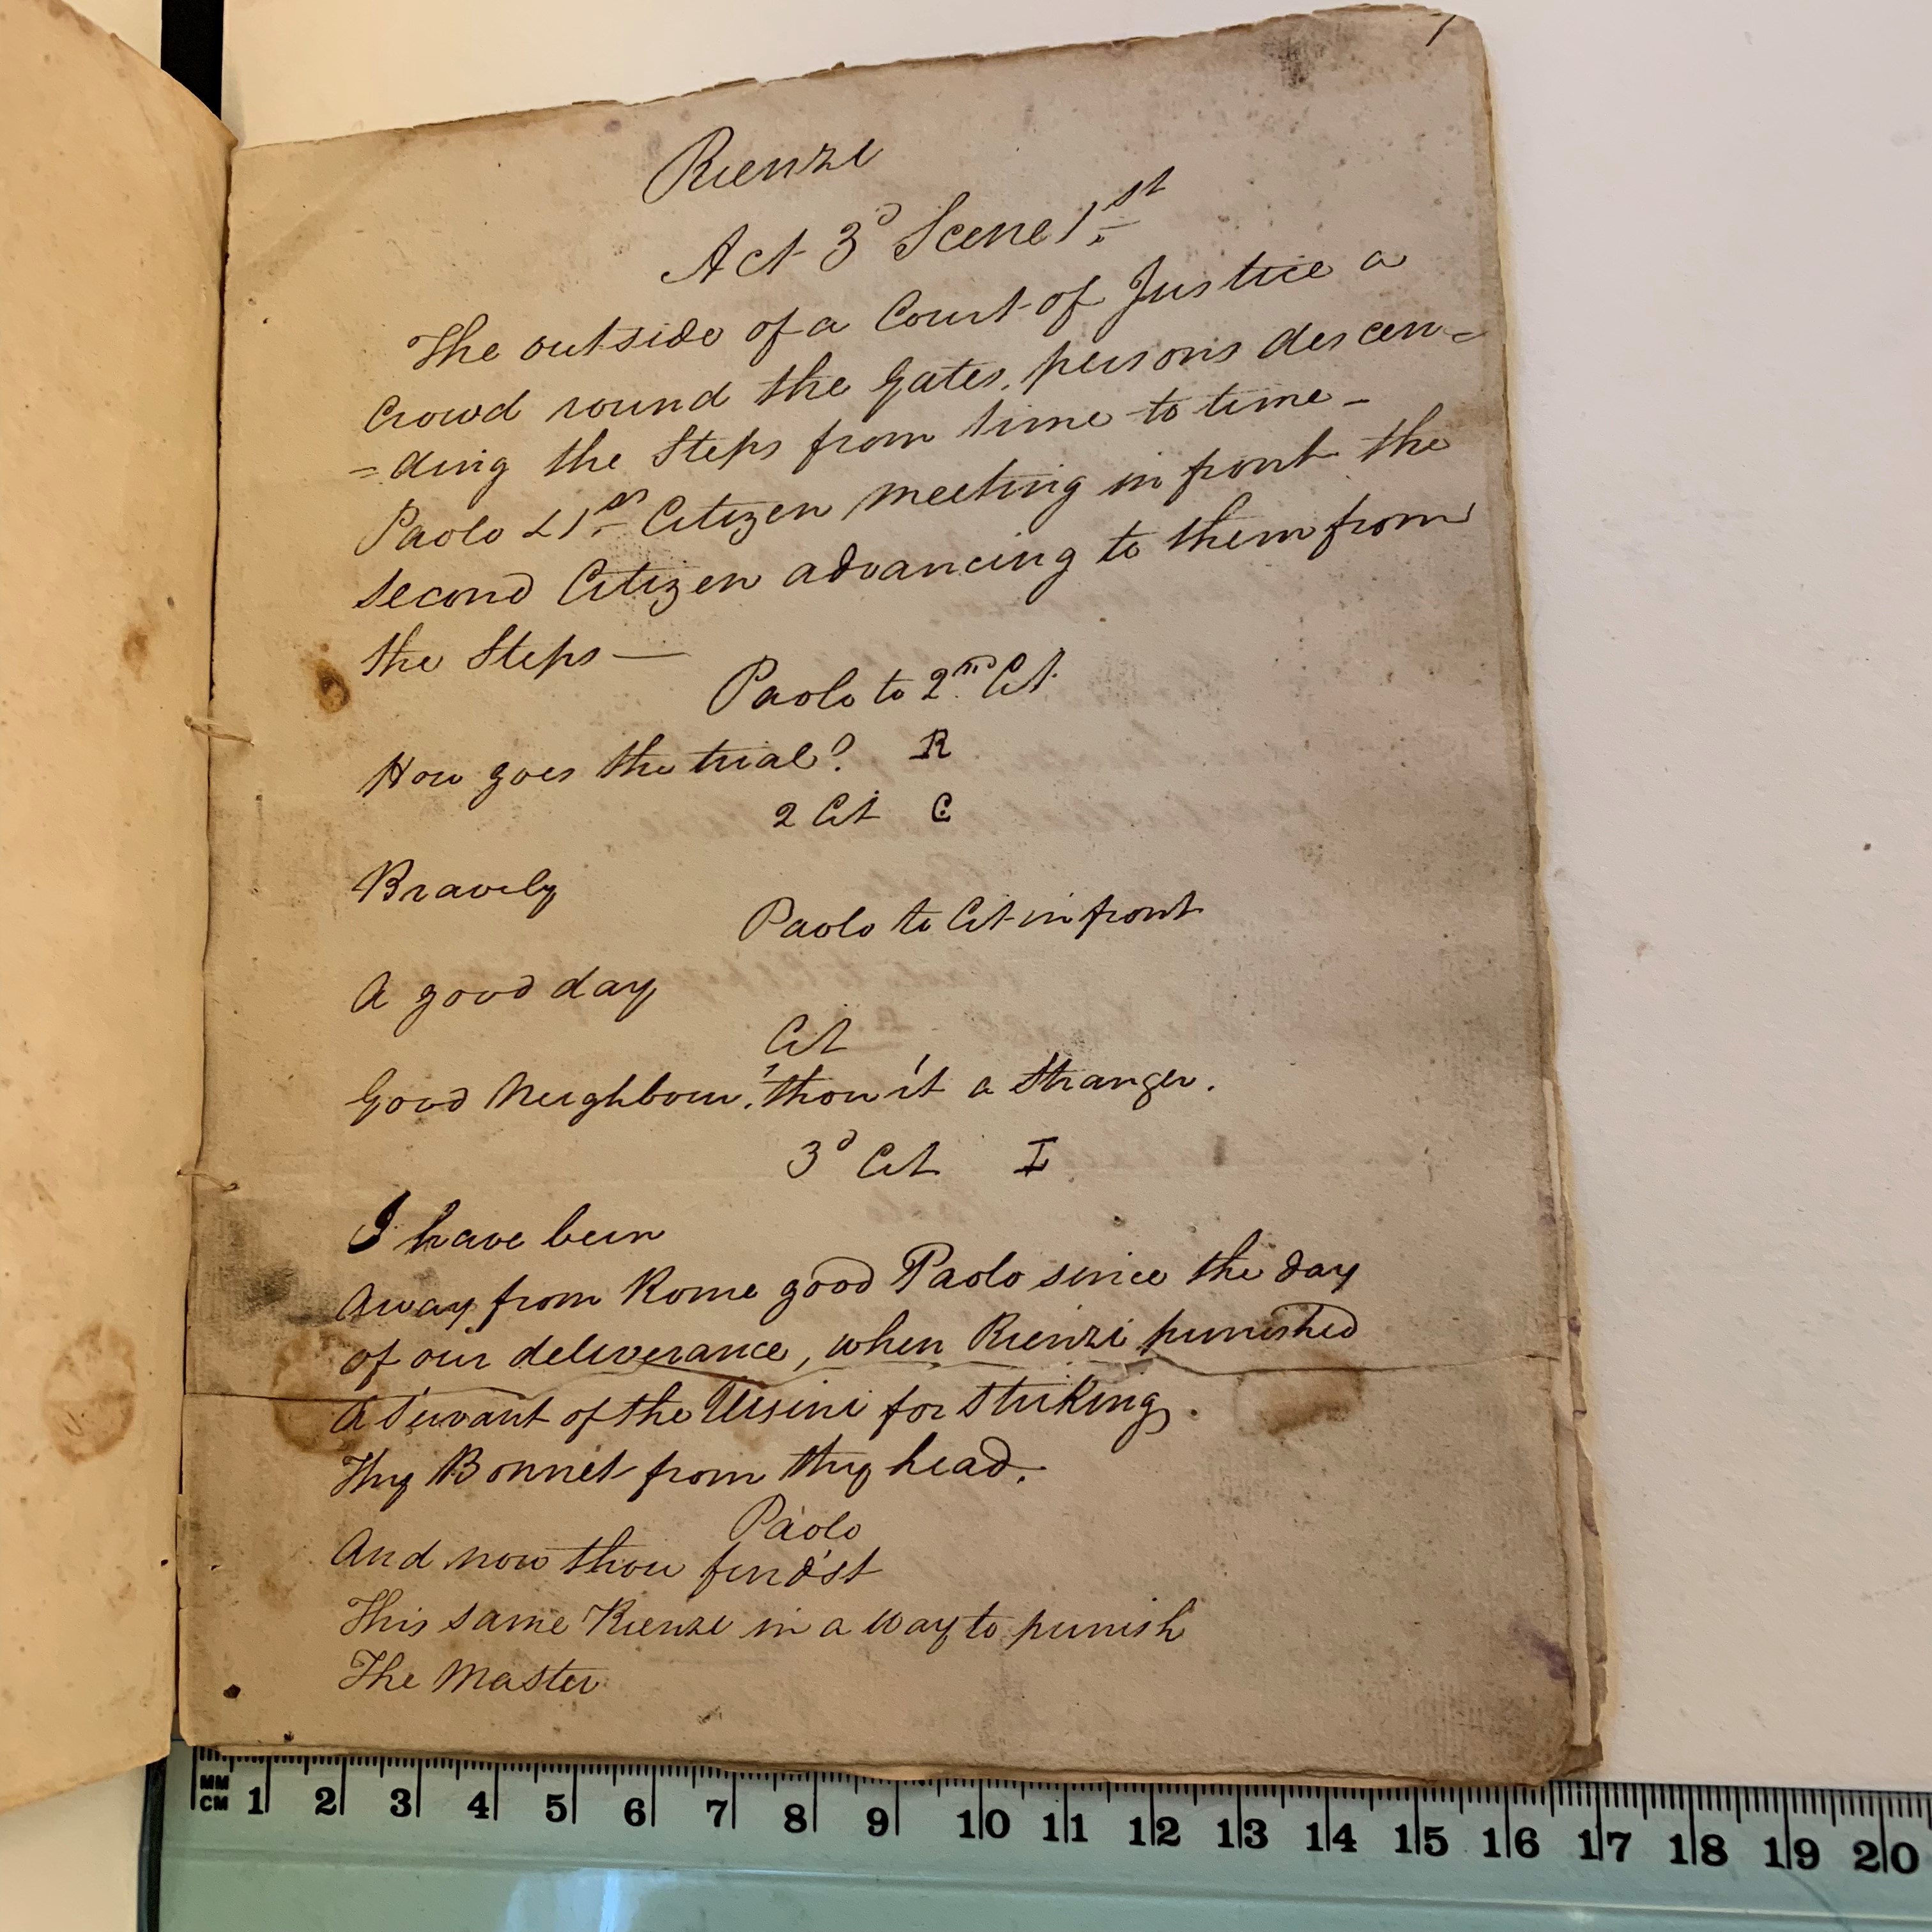 1
Rienzi
Act 3d Scene 1st
The outside of a Court of Justice a
Crowd round the Gates, persons descen=
=ding the Steps from time to time -
Paolo & 1st Citizen meeting in front the
second Citizen advancing to them from
the Steps —
Paolo to 2nd Cit
How goes the trial? R
2 Cit C
Bravely
Paolo to Cit in front
A good day
Cit
Good Neighbour, thou'rt a Stranger.
3d Cit L
I have been
Away from Rome good Paolo since the day
of our deliverance, when Rienzi punished
A Servant of the Ursini for striking
Thy Bonnet from thy head.
Paolo
And now thou find'st
This same Rienzi in a way to punish
The Master
MM
CM 1 2 3 4 5 6 7 8 9 10 11 12 13 14 15 16 17 18 19 20